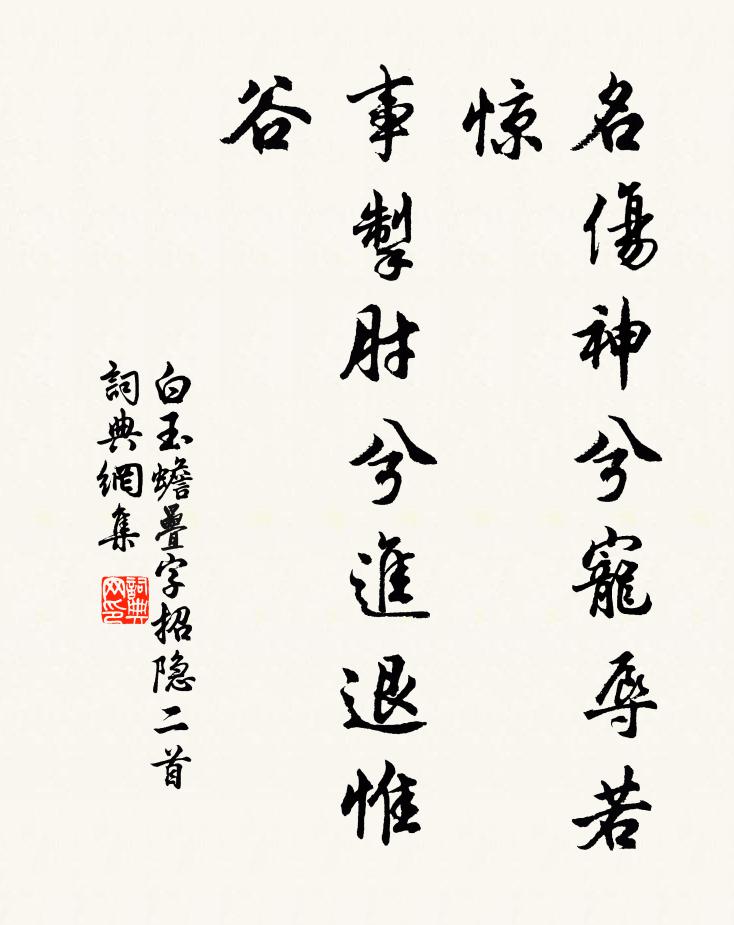 名傷神兮寵辱若
惊
事掣肘兮進退惟
谷
白玉蟾疊字招隐二首
詞典網集
詞典網印